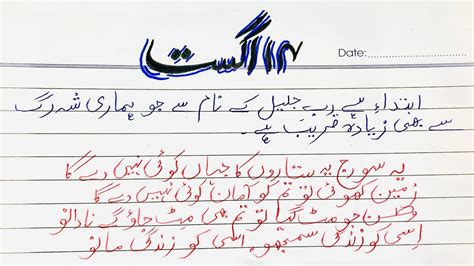 ۱۴ اگست
Date:
ابتداء ہے ربِ جلیل کے نام سے جو ہماری شہ رگ
سے بھی زیادہ قریب ہے۔
یہ سورج یہ ستاروں کا جہاں کوئی نہیں دے گا
زمین کھوئی تو تم کو آماں کوئی نہیں دے گا
وطن جو مٹ گیا تو تم بھی مِٹ جاؤ گے نادانو
اِسی کو زندگی سمجھو، اسی کو زندگی مانو